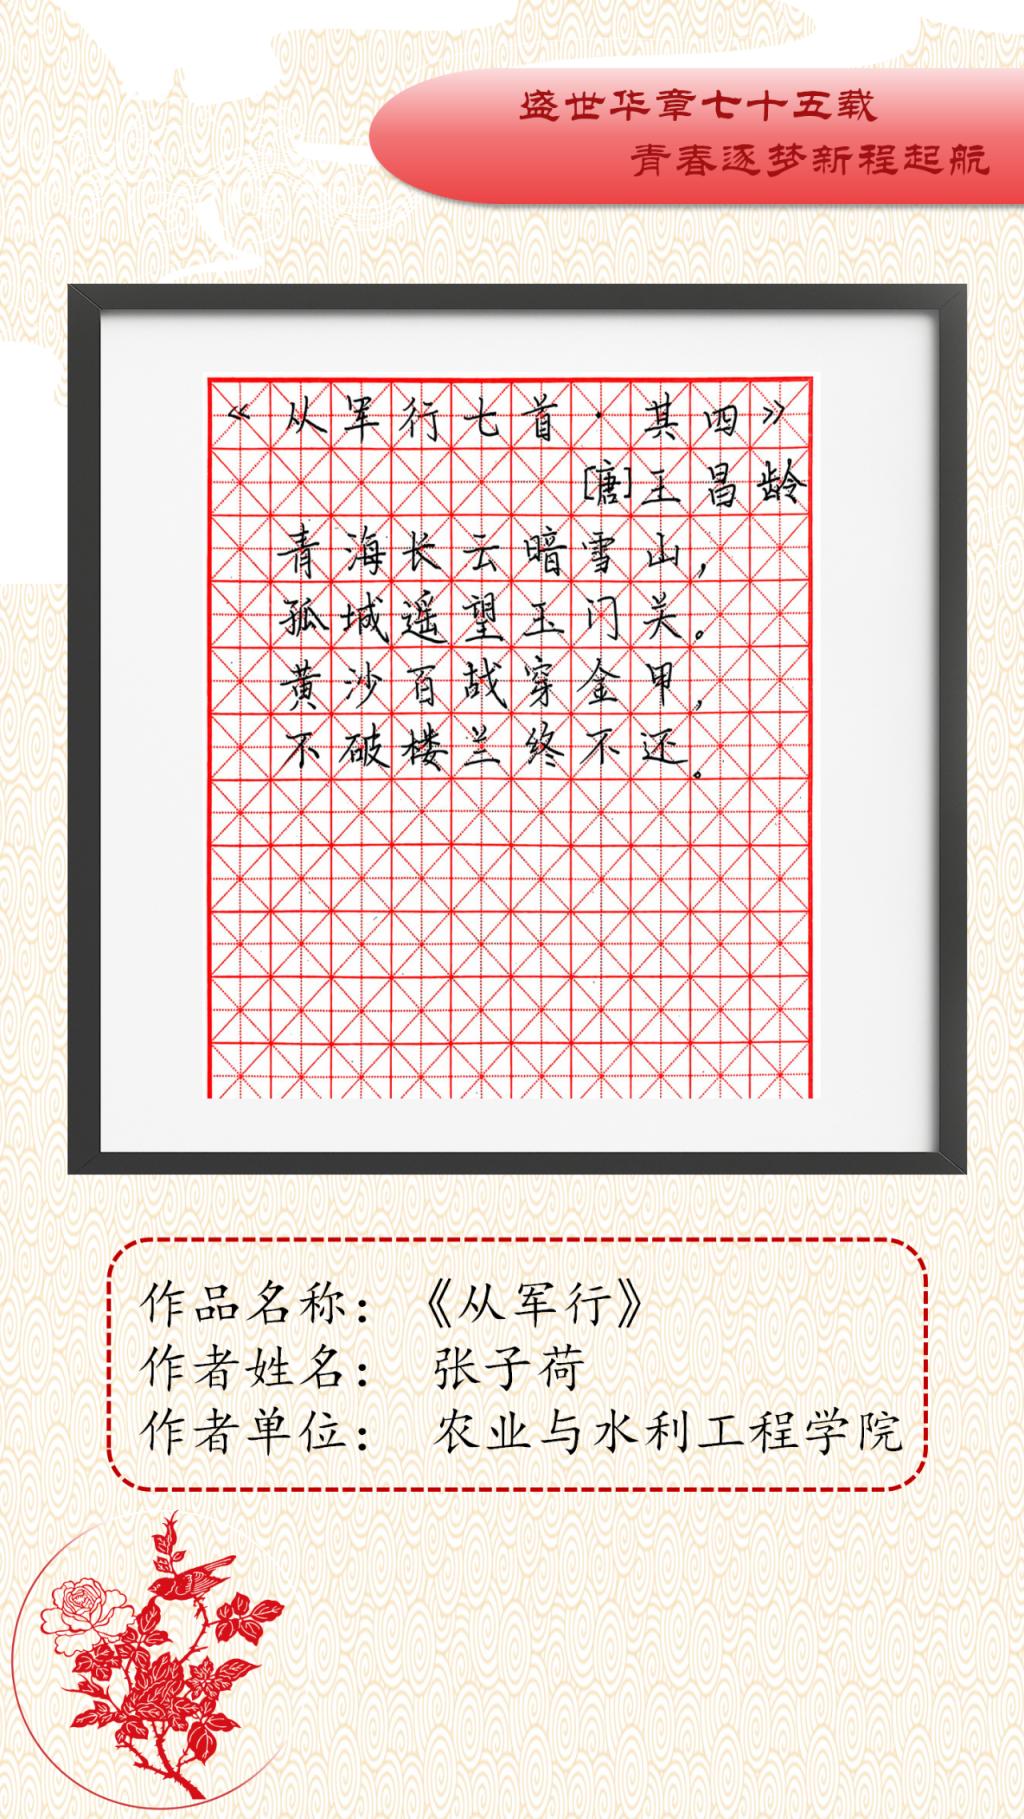 盛世华章七十五载
青春逐梦新程起航
《从军行七首·其四》
[唐]王昌龄
青海长云暗雪山，
孤城遥望玉门关。
黄沙百战穿金甲，
不破楼兰终不还。
作品名称：《从军行》
作者姓名： 张子荷
作者单位： 农业与水利工程学院